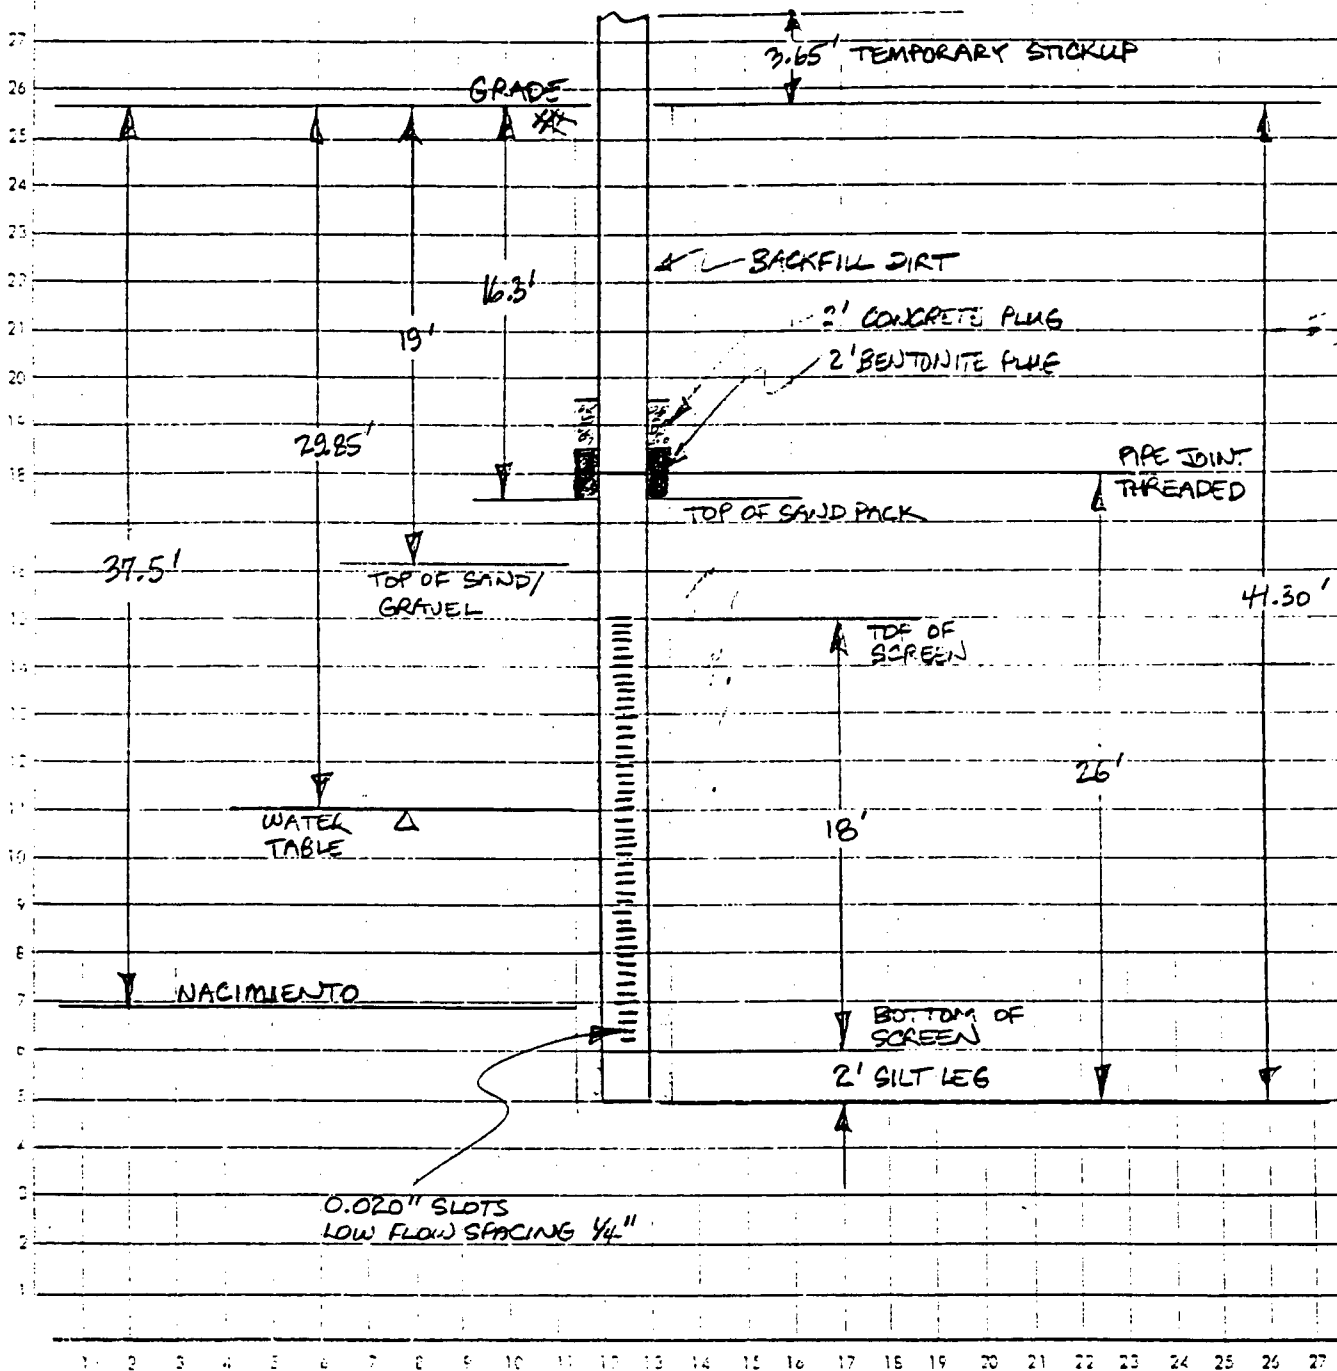 3.65' TEMPORARY STICKUP
GRADE
BACKFILL DIRT
16.3'
2' CONCRETE PLUG
19'
2' BENTONITE PLUG
29.85'
PIPE JOINT
THREADED
TOP OF SAND PACK
37.5'
TOP OF SAND/
GRAVEL
41.30'
TOP OF
SCREEN
26'
WATER
TABLE
18'
NACIMIENTO
BOTTOM OF
SCREEN
2' SILT LEG
0.020" SLOTS
LOW FLOW SPACING 1/4"
27
26
25
24
23
22
21
20
18
9
7
5
4
2
1
1 2 3 6 7 11 12 13 14 15 16 17 18 19 20 21 22 23 24 25 26 27